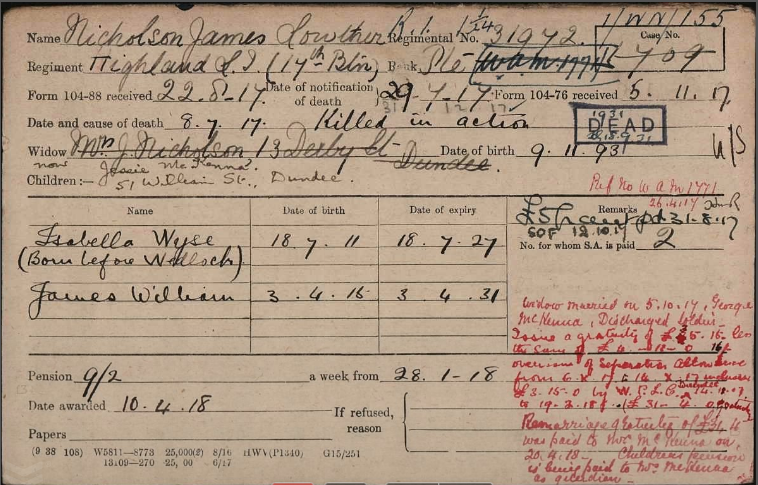 1/WN/155
Name Nicholson James Lowther Regimental No. 31972.
Case No.
Regiment Highland L.I. (17th Btn) Rank Pte
Form 104-88 received 22.8.17. Date of notification of death 29.7.17. Form 104-76 received 5. 11. 17
Date and cause of death 8.7.17. Killed in action
DEAD
Widow Mrs J. Nicholson 13 Derby St Dundee Date of birth 9.11.93
now Jessie McKenna.
Children:— 51 William St., Dundee.
Ref No W A M 1771
26.4.17
Name Date of birth Date of expiry Remarks
£5 pd 31-8-17
SOF 12.10.17
No. for whom S.A. is paid 2
Isabella Wyse 18.7.11 18.7.27
(Born before Wedlock)
James William 3.4.15 3 4.31
Widow married on 5.10.17, George
McKenna, Discharged Soldier.
Issue a gratuity of
the sum of
of Separation Allowance
from 6 X 17 to 14 X 17
£3.15.0 by W.P.L.C. Dundee
to 19.3.18
Remarriage gratuity of £31.4
was paid to Mrs McKenna on
20.4.18. Childrens pension
is being paid to Mrs McKenna
as guardian.
Pension 9/2 a week from 28.1-18
Date awarded 10.4.18
If refused, reason
Papers
(9 38 108) W5811—8773 25,000(2) 8/16 HWV(P1340) G15/251
13109—270 25, 00 6/17